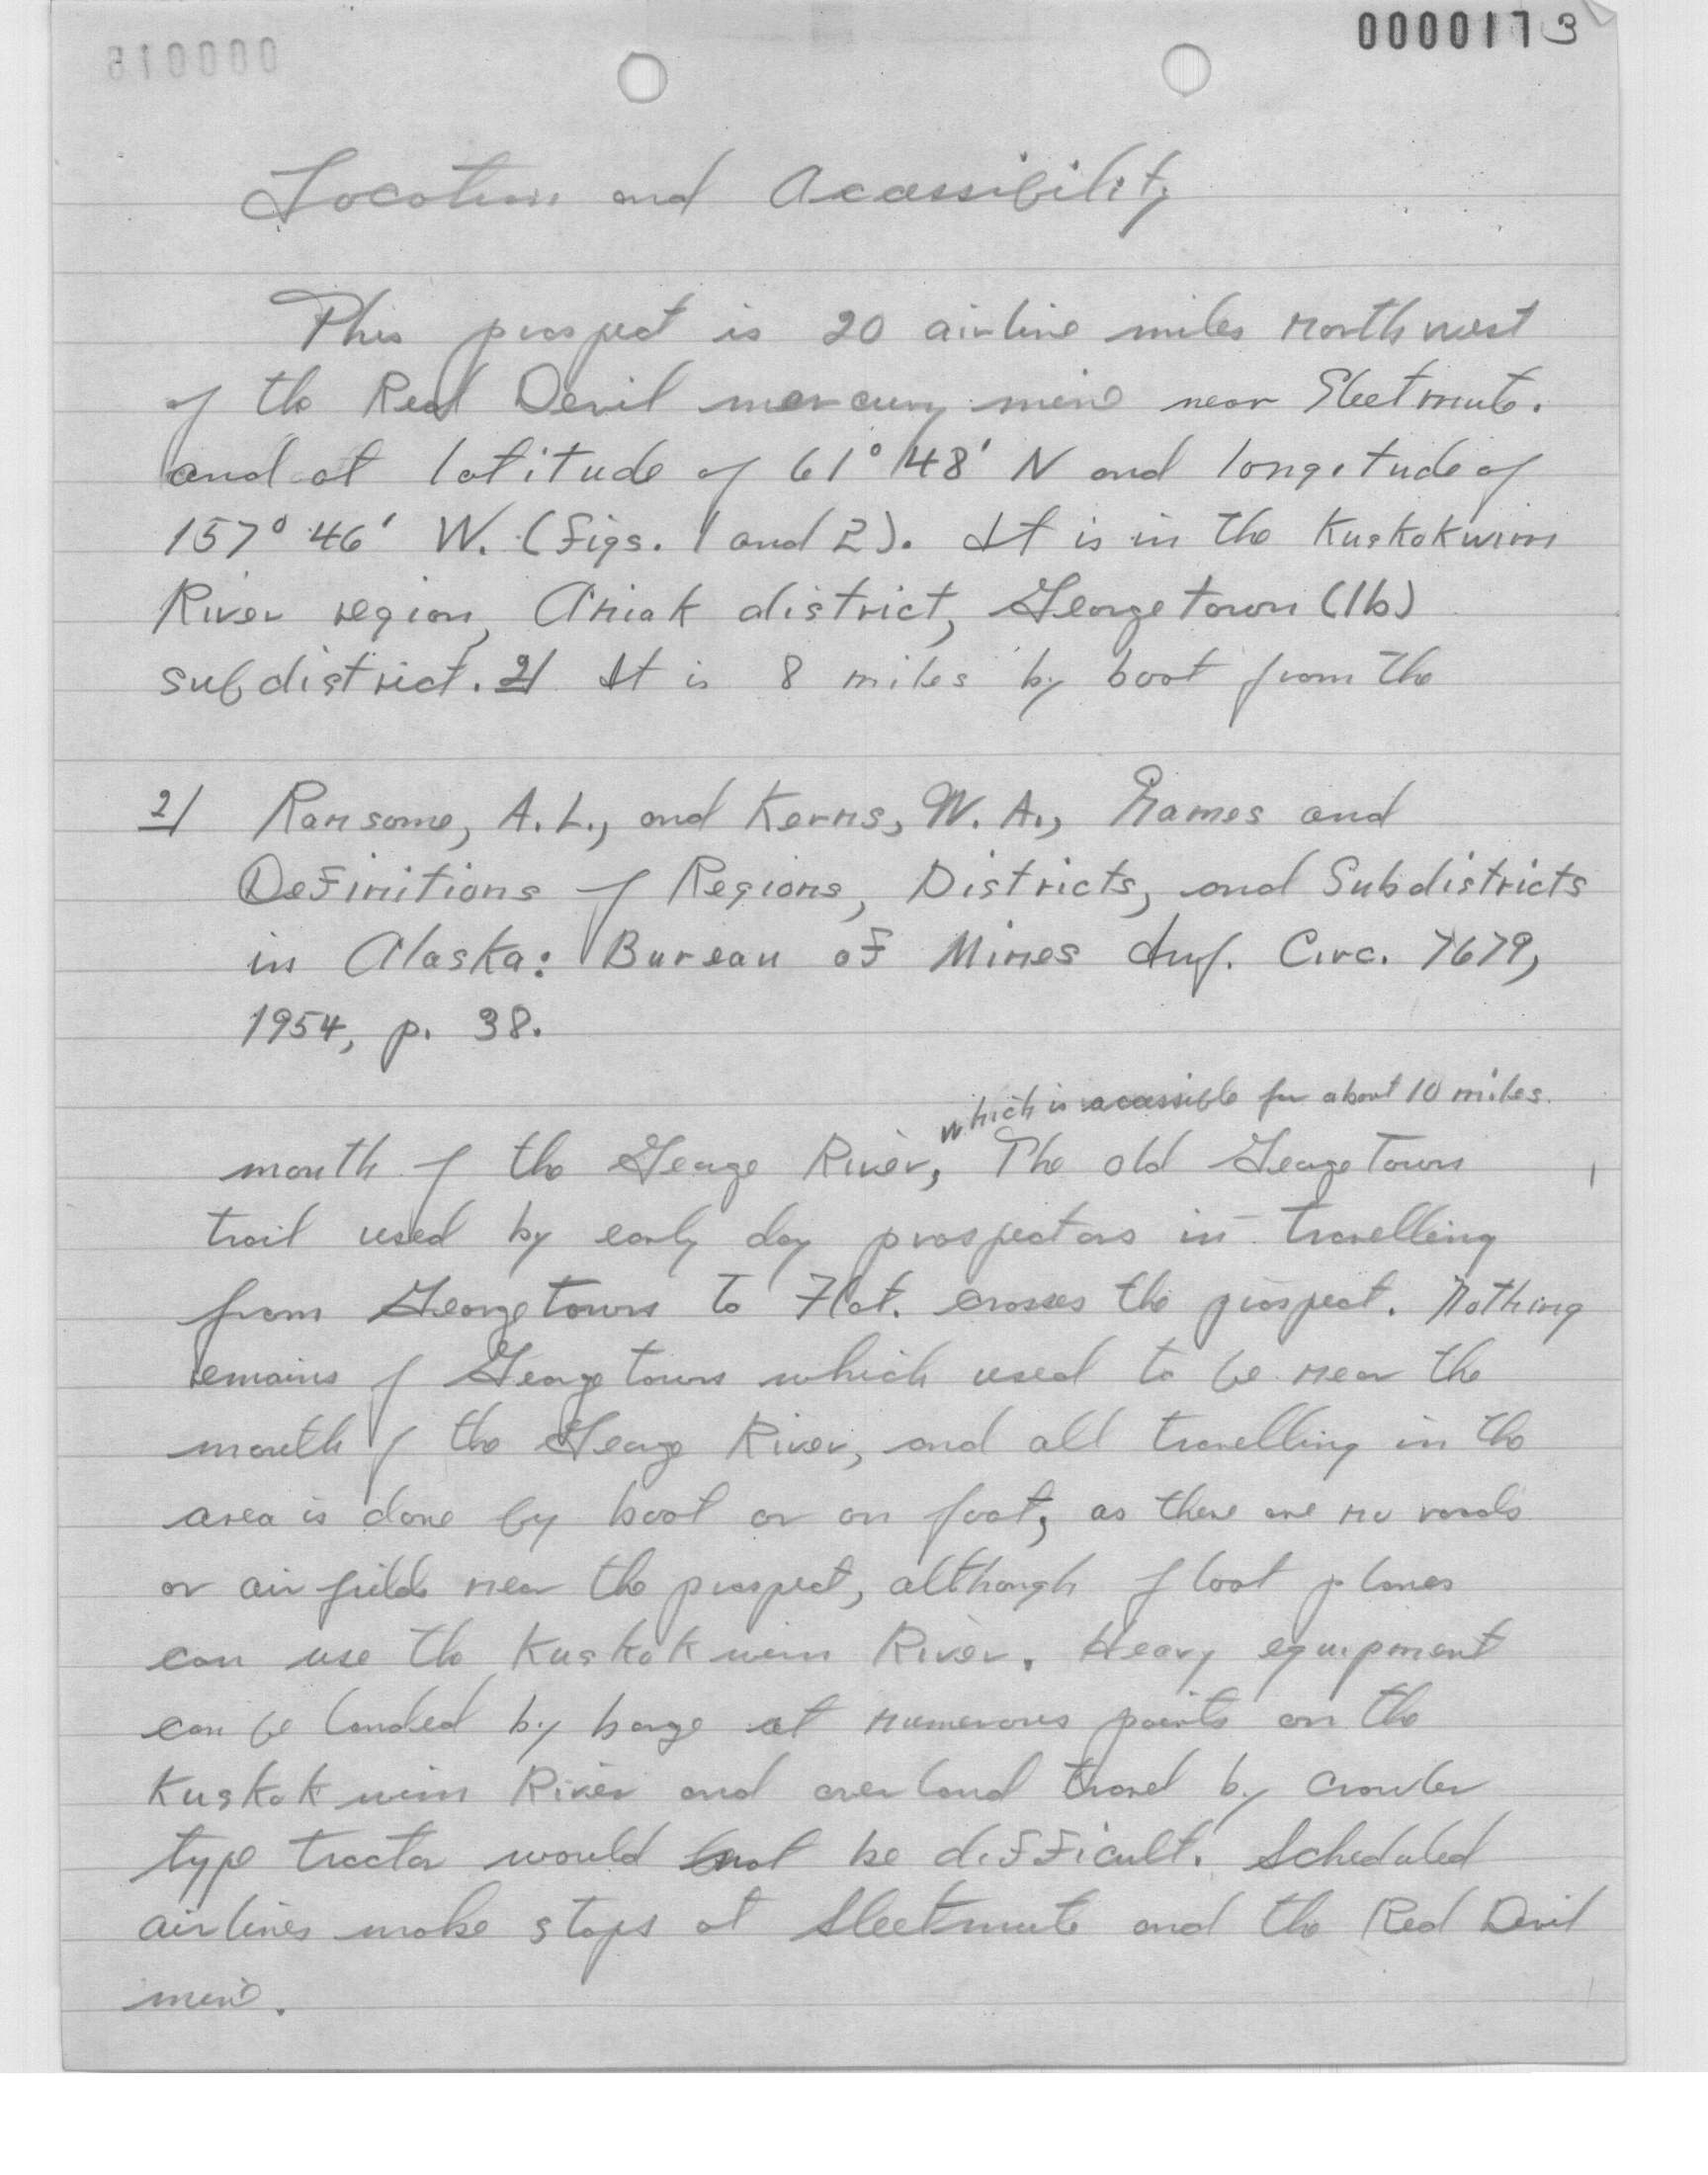 0000173
Location and Acessibility
This prospect is 20 airline miles northwest
of the Red Devil mercury mine near Sleetmute.
and at latitude of 61° 48' N and longitude of
157° 46' W. (Figs. 1 and 2). It is in the Kuskokwim
River region, Aniak district, Georgetown (1b)
subdistrict. 2/ It is 8 miles by boat from the
2/ Ransome, A. L., and Kerns, W. A., Names and
Definitions of Regions, Districts, and Subdistricts
in Alaska: Bureau of Mines Inf. Circ. 7679,
1954, p. 38.
which is acessible for about 10 miles.
mouth of the George River, The old Georgetown
trail used by early day prospectors in travelling
from Georgetown to Flat. crosses the prospect. Nothing
remains of Georgetown which used to be near the
mouth of the George River, and all travelling in the
area is done by boat or on foot, as there are no roads
or air fields near the prospect, although float planes
can use the Kuskokwim River. Heavy equipment
can be landed by barge at numerous points on the
Kuskokwim River and overland travel by crawler
type tractor would not be difficult. Scheduled
airlines make stops at Sleetmute and the Red Devil
mine.